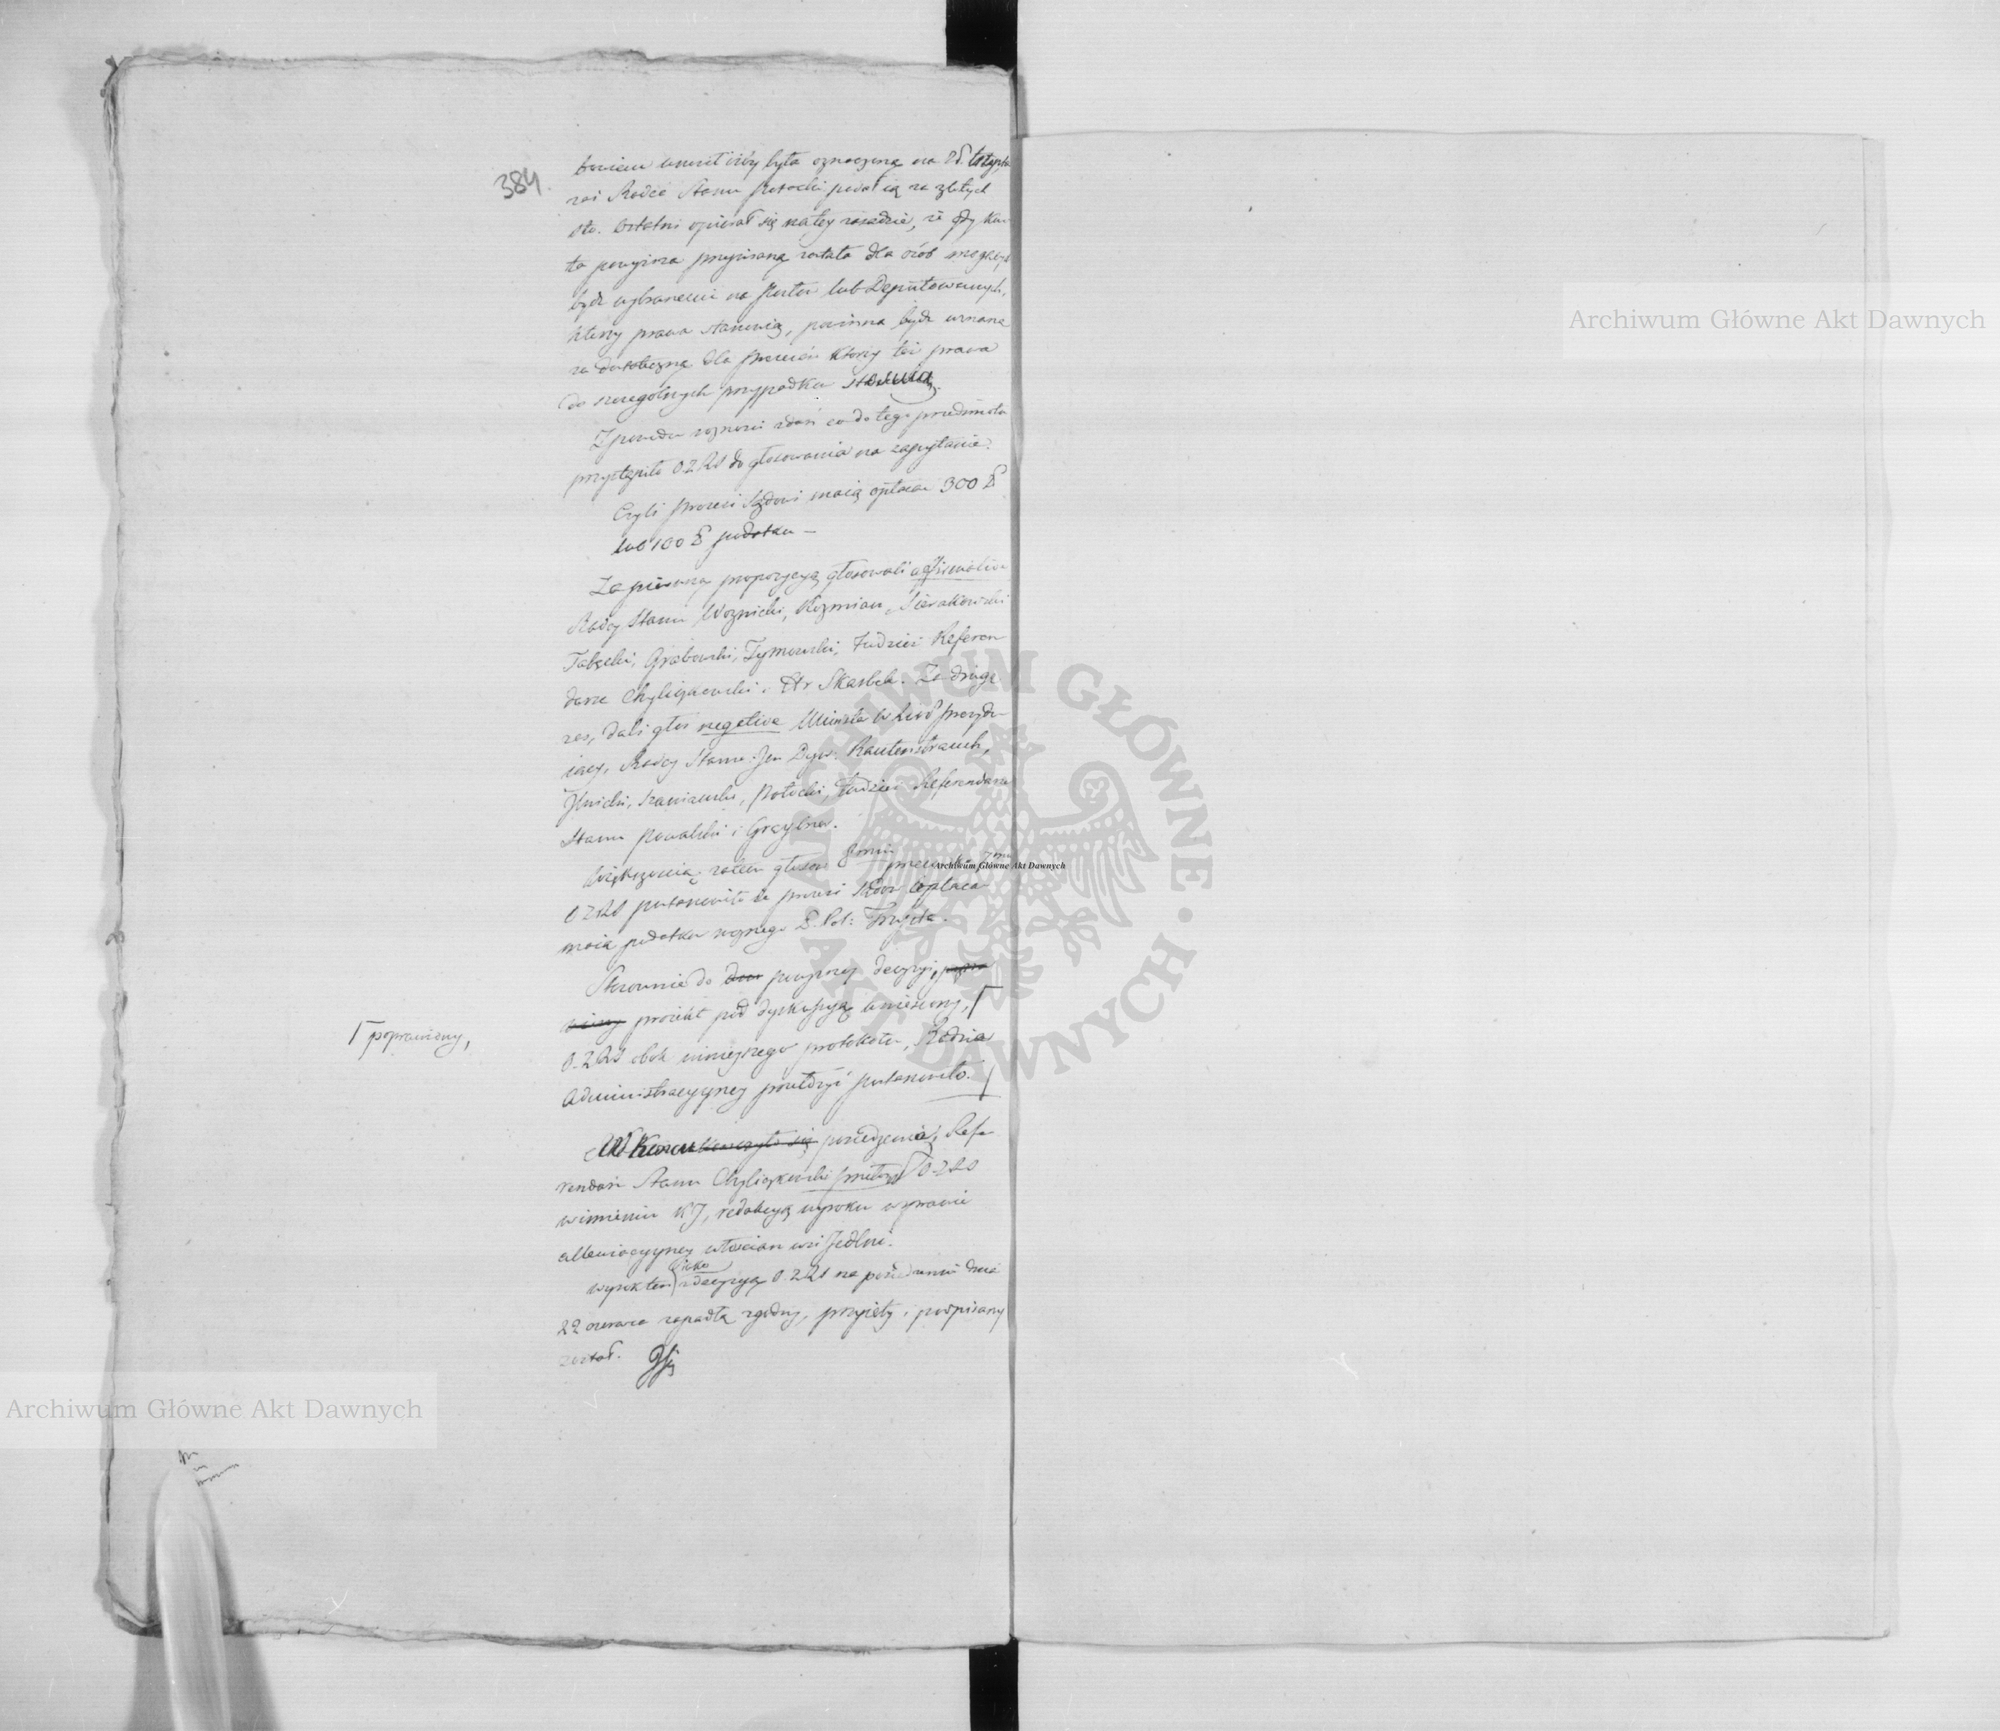 384.
bowiem wniósł iżby była oznaczoną na zł. trzysta
zaś Radca Stanu Potocki podał ią na złotych
sto. Ostatni opierał się na tey zasadzie, że gdy
ta powyższa przepisaną została dla osób mogących
bydź wybranemi na Posłów lub Deputowanych,
którzy prawa stanowią, powinna bydź uznaną
za dostateczną dla którzy też prawa
do szczególnych przypadków stosuią.
Z powodu różności zdań co do tego przedmiotu
przystąpiło OZRS do głosowania na zapytanie:
Czyli Prezesi Sądowi maią opłacać 300 Zł
lub 100 Zł podatku —
Za pierwszą propozycyą głosowali affirmative
Radcy Stanu Woźnicki, Koźmian, Sierakowski
Tabęcki, Grabowski, Tymowski, tudzież Referen
darze Chyliczkowski i Hr Skarbek. Za drugą
zaś, dali głos negative Minister Prezydu-
iący, Radcy Stanu: Jen Dyw. Rautenstrauch,
Ilnicki, Szaniawski, Potocki, tudzież Referendarze
Stanu Kowalski i Grąybner.
Większością zatem głosów 8miu przeciwko 7miu
OZRS postanowiło że prezesi Sądów opłacać
maią podatku rocznego Zł. Pol: Trzysta.
Stosownie do powyższej decyzyi,
proiekt pod dyskussyą wniesiony, Γ
Γ poprawiony,
O.ZRS obok ninieyszego protokołu, Radzie
Administracyyney przedłożyć postanowiło.
W Końcu kończyło się posiedzenia, Refe-
rendarz Stanu Chyliczkowski przełożył O.ZRS
w imieniu KJ, redakcyą wyroku w sprawie
allewiacyyney włościan wsi Jedlni.
Wyrok ten jako z decyzyą O.ZRS na posiedzeniu dnia
22 czerwca zapadłą zgodny, przyięty i podpisany
został.
Archiwum Główne Akt Dawnych
Archiwum Główne Akt Dawnych
Archiwum Główne Akt Dawnych
ARCHIWUM GŁÓWNE • AKT DAWNYCH •